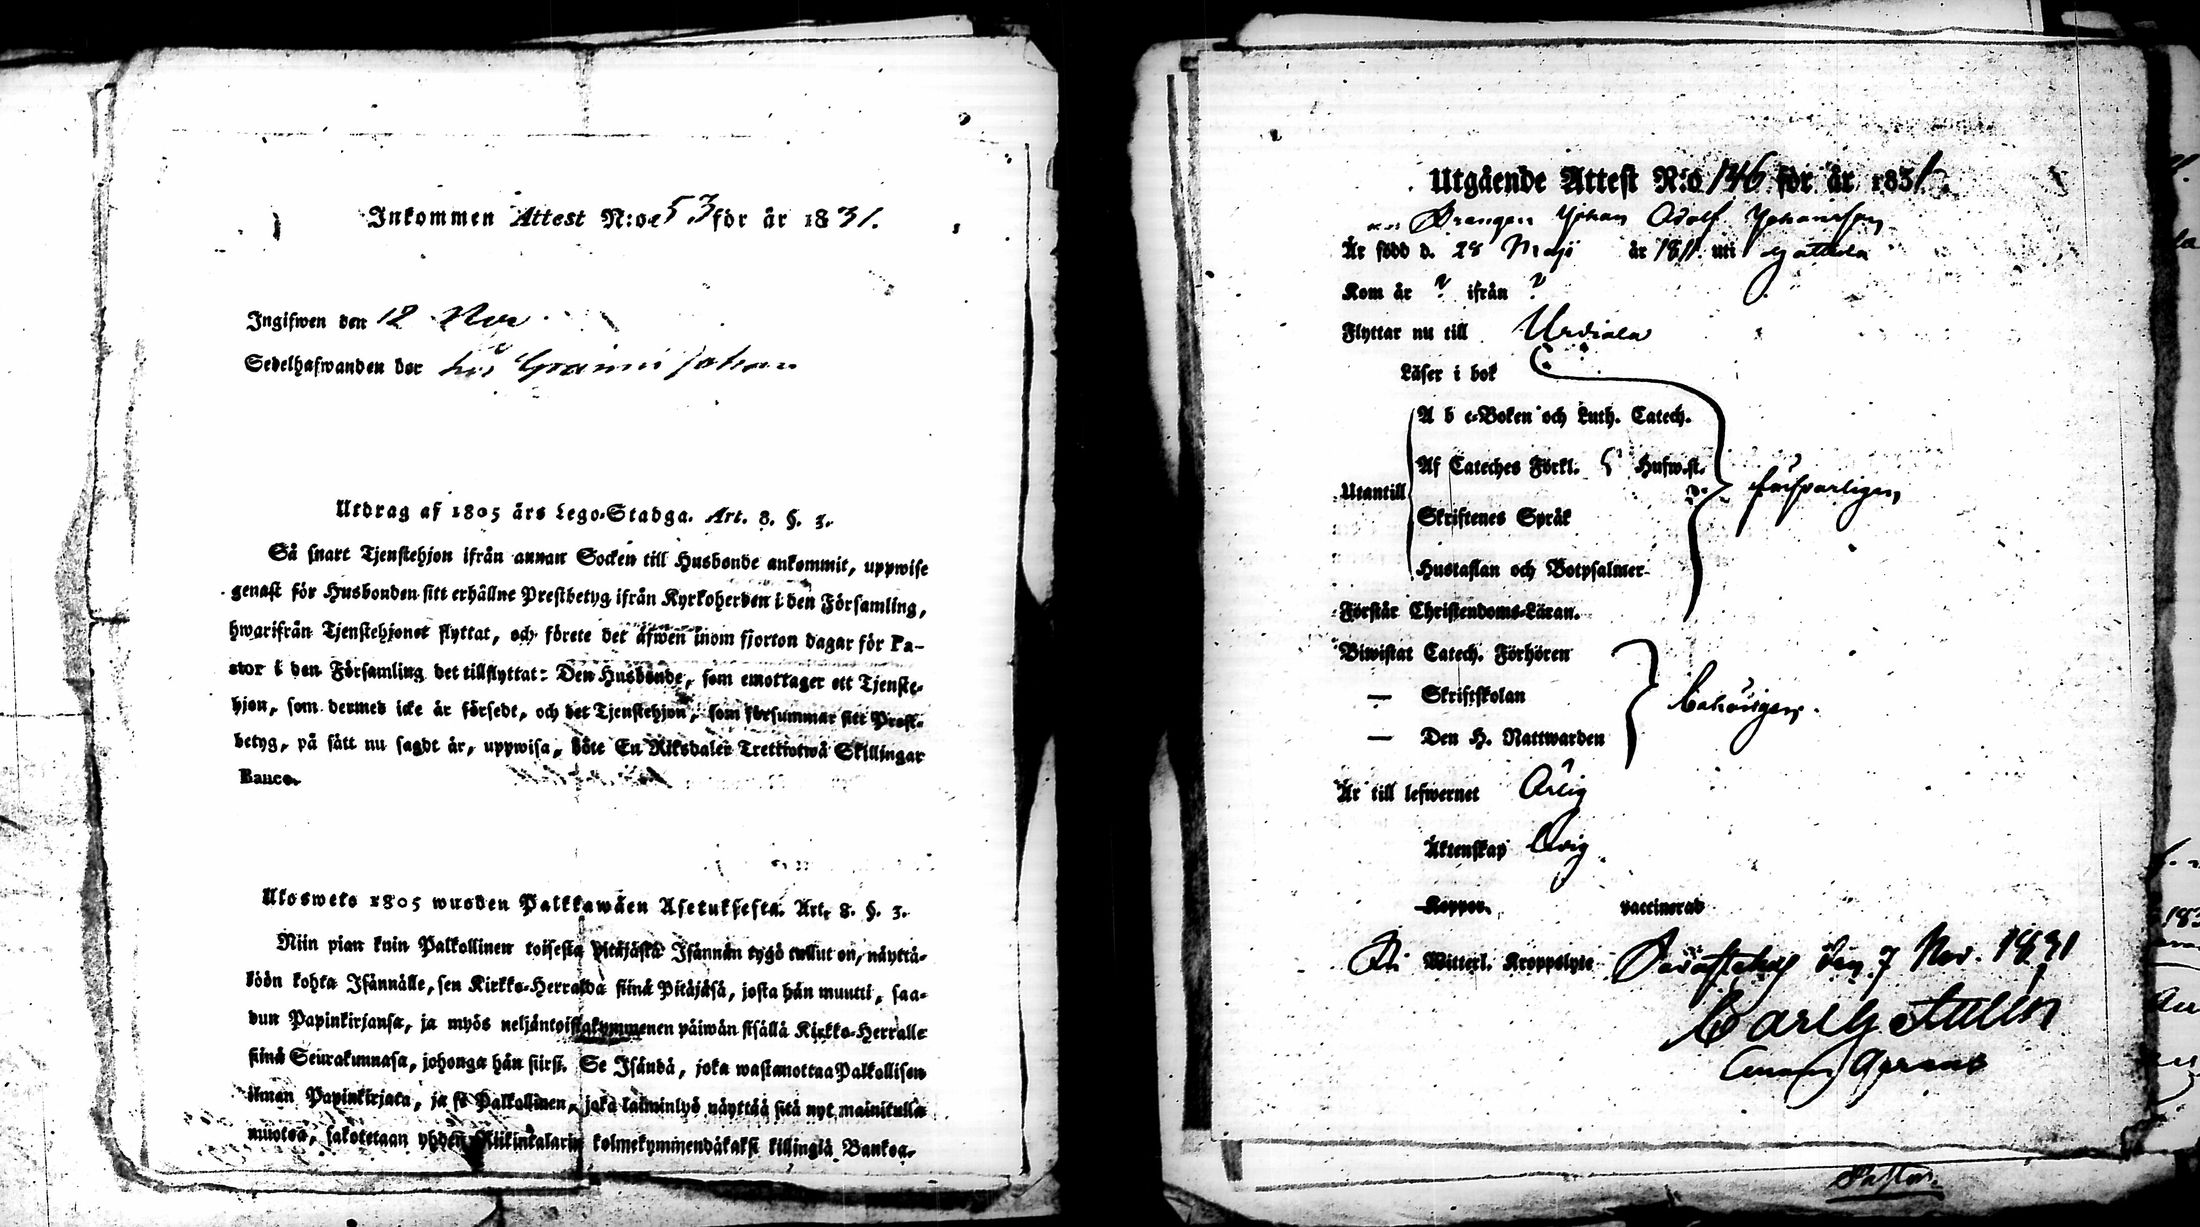 Inkommen Attest N:o 53 för år 1831.
Ingifwen den 12 Nov
Sedelhafwanden bor hos Johan
Utdrag af 1805 års Lego-Stadga. Art. 8. §. 3.
Så snart Tjenstehjon ifrån annan Socken till Husbonde ankommit, uppwise
genast för Husbonden sitt erhållne Prestbetyg ifrån Kyrkoherden i den Församling,
hwarifrån Tjenstehjonet flyttat, och förete det äfwen inom fjorton dagar för Pa-
stor i den Församling det tillflyttat: Den Husbonde, som emottager ett Tjenste-
hjon, som dermed icke är försedt, och det Tjenstehjon, som försummar sitt Prest-
betyg, på sätt nu sagdt är, uppwisa, böte En Riksdaler Trettiotwå Skillingar
Banco.
Ulosweto 1805 wuoden Palkkawäen Asetuksesta. Art. 8. §. 3.
Niin pian kuin Palkollinen toisesta pitäjästä Isännän tygö tullut on, näyttä-
köön kohta Isännälle, sen Kirkko-Herralda siinä Pitäjäsä, josta hän muutti, saa-
dun Papinkirjansa, ja myös neljäntoistakymmenen päiwän sisällä Kirkko-Herralle
siinä Seurakunnasa, johonga hän siirsi. Se Isändä, joka wastanottaa Palkollisen
ilman Papinkirjata, ja se Palkollinen, joka laiminlyö näyttää sitä nyt mainitulla
muotoa, sakotetaan yhden Riikintalarin kolmekymmendäkaksi killingiä Bankoa.
Utgående Attest N:o 146 för år 1831.
Drängen Johan Adolf Johansson
Är född d. 28 Maji år 1811 uti
Kom år ? ifrån ?
Flyttar nu till Urdiala
Läser i bok
A b c-Boken och Luth. Catech.
Af Cateches Förkl. Husw.st.
Utantill
Skriftenes Språk försvarligen
Hustaflan och Botpsalmer
Förstår Christendoms-Läran.
Biwistat Catech. Förhören
— Skriftskolan behörigen.
— Den H. Nattwarden
Är till lefwernet Ärlig
Äktenskap ledig
Koppor. vaccinerad
Witterl. Kroppslyte den 7 Nov. 1831
Carl G
Pastor.